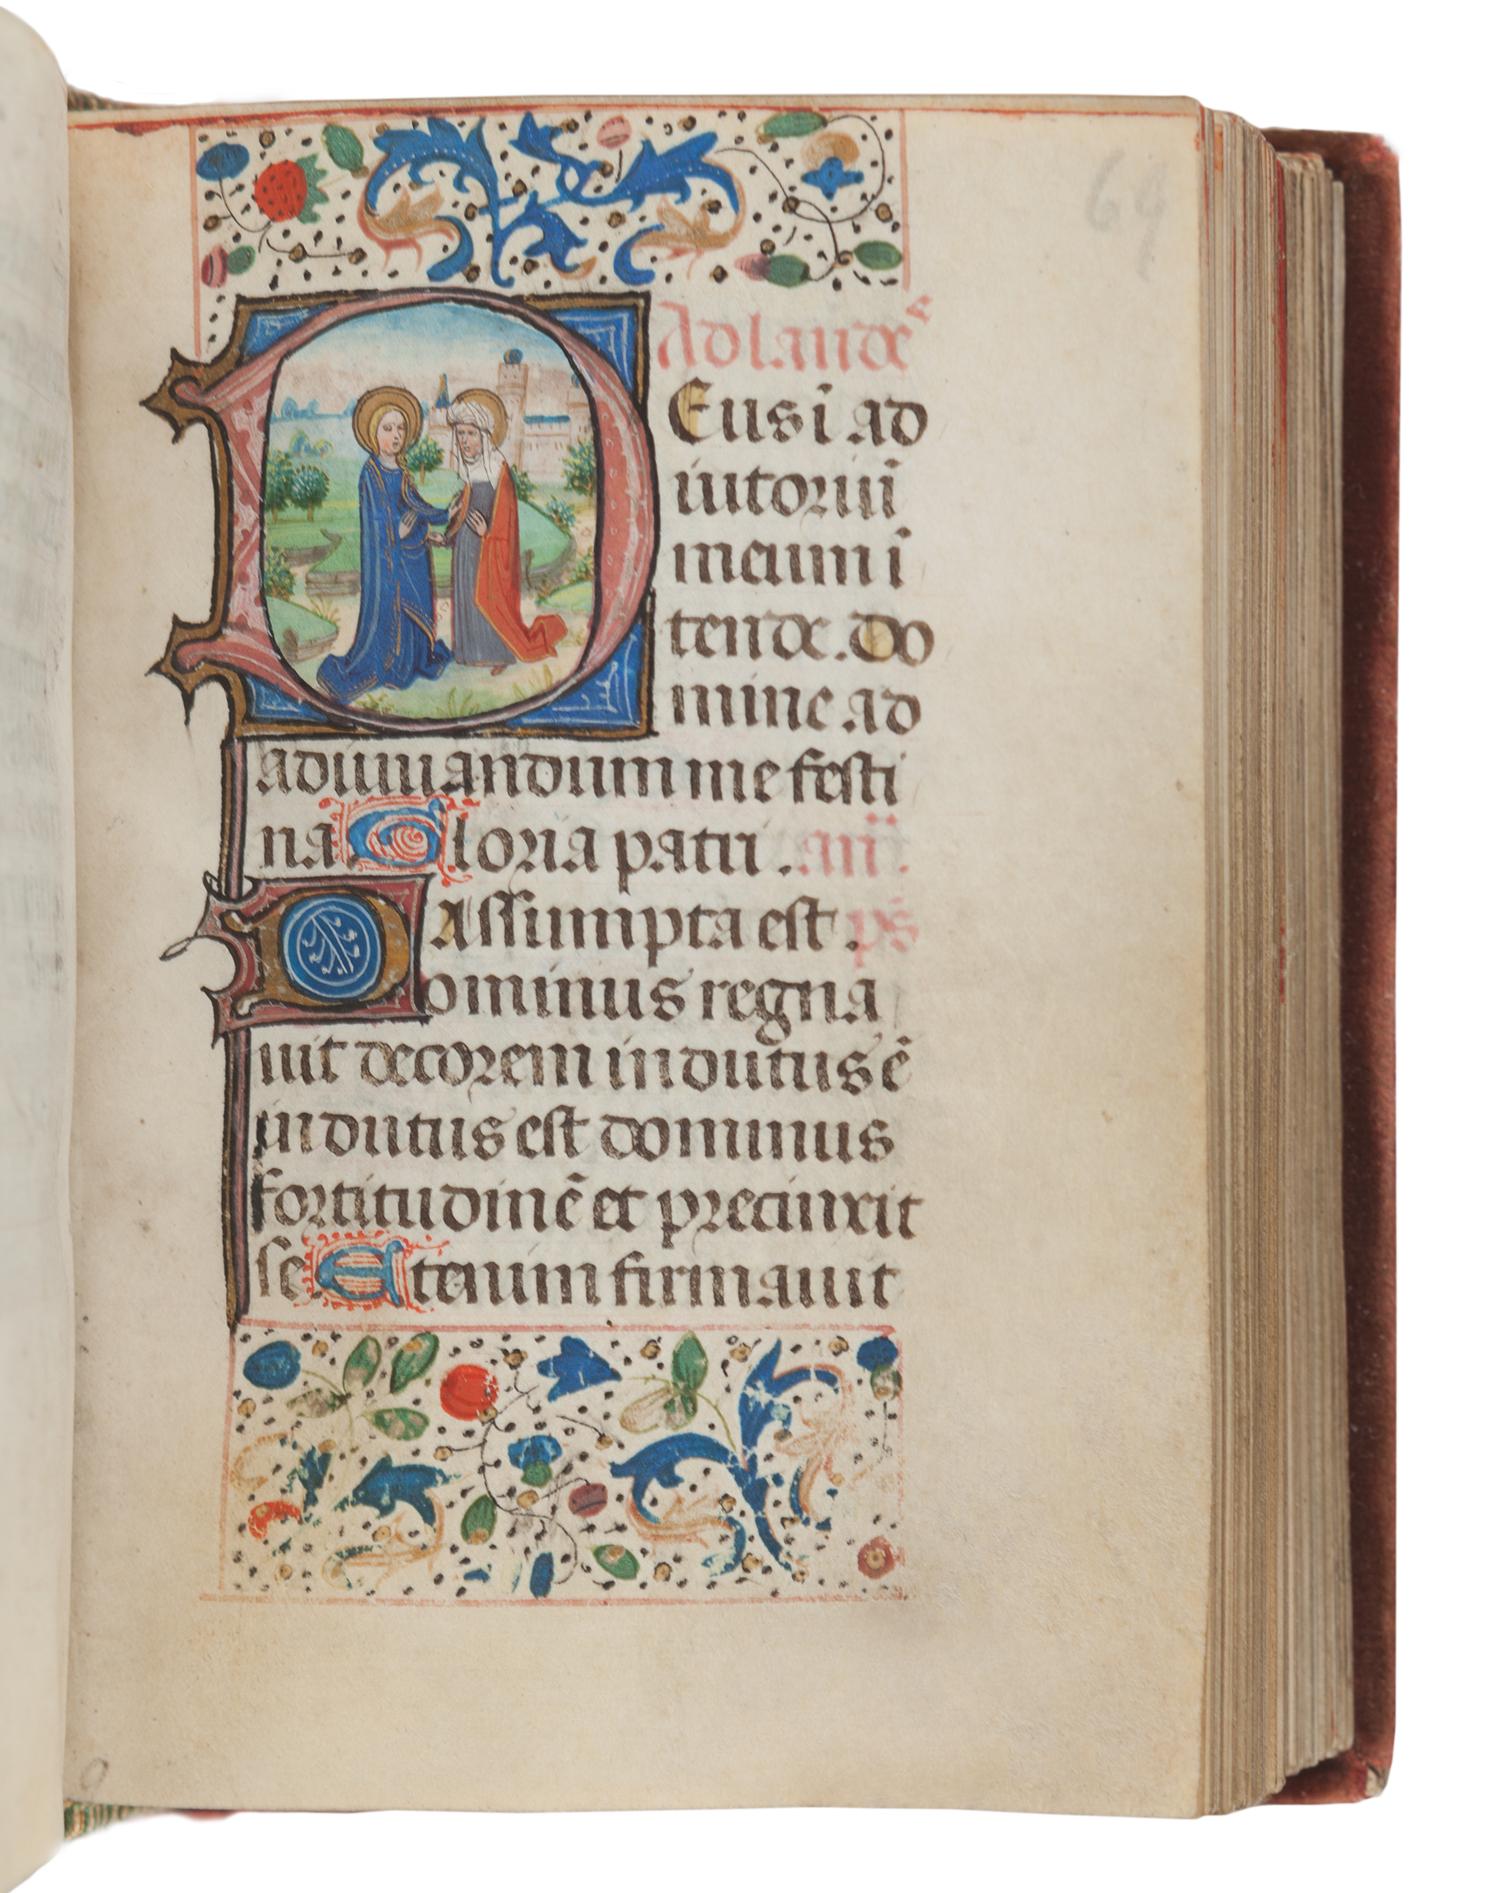 69
Ad laudes
Deus ī ad
iutoriū
meum ī
tende. Do
mine ad
adiuuandum me festi
na Gloria patri . an̄.
Assumpta est . ps̄
Dominus regna
uit decorem indutus ē
indutus est dominus
fortitudinē et precinxit
se. Etenim firmauit